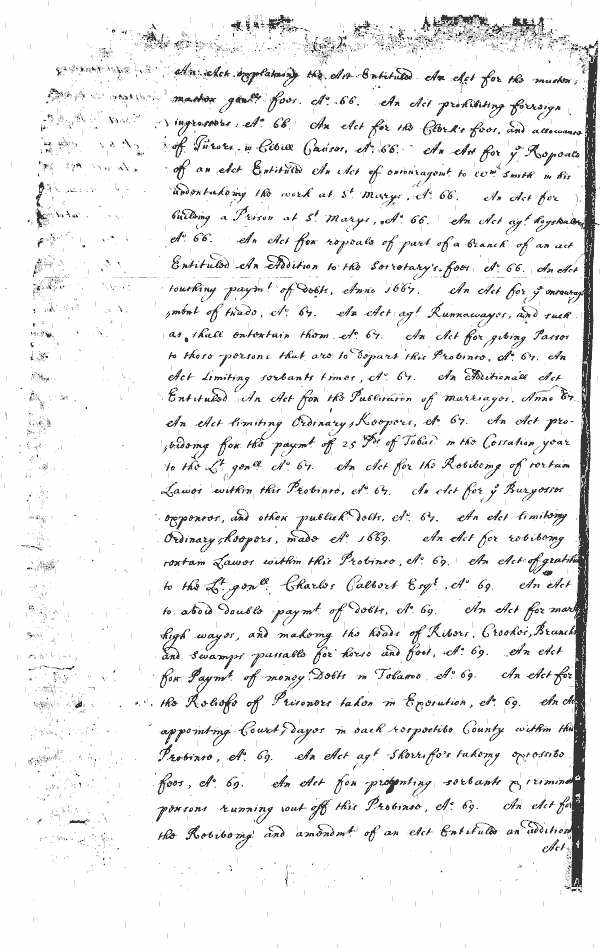 An Act explaining the Act Entituled An Act for the muster,
master gen:ll fees. Ao. 66. An Act prohibiting forreign
ingrossers, Ao. 66. An Act for the Clerk's fees, and allowance
of Jurors in Civill Causes, Ao. 66. An Act for ye Repeale
of an Act Entituled An Act of encouragemt to Wm Smith in his
undertakeing the work at St. Marys, Ao. 66. An Act for
building a Prison at St. Marys, Ao. 66. An Act agt hogstealers
Ao. 66. An Act for repeale of part of a branch of an act
Entituled An Addition to the Secretary's fees. Ao. 66. An Act
touching paymt of debts, Anno 1667. An Act for ye encourage
ment of trade, Ao. 67. An Act agt Runnawayes, and such
as shall entertain them Ao. 67. An Act for giving Passes
to those persons that are to depart this Province, Ao. 67. An
Act Limiting servants times, Ao. 67. An Additionall Act
Entituled An Act for the Publication of marriages, Anno 67.
An Act limiting Ordinary, Keepers, Ao. 67. An Act pro-
,videing for the paymt of 25 of Tobac in the Cessation year
to the Lt genll Ao. 67. An Act for the Reviveing of certain
Lawes within this Province, Ao. 67. An Act for ye Burgesses
expences, and other publick debts, Ao. 67. An Act limiteing
Ordinary, keepers, made Ao. 1669. An Act for reviveing
certain Lawes within this Province, Ao. 69. An Act of gratitude
to the Lt. genll. Charles Calvert Esqr., Ao. 69. An Act
to avoid double paymt of debts, Ao. 69. An Act for mark
high wayes, and makeing the heads of Rivers, Creekes, Branches
and Swamps passable for horse and foot, Ao. 69. An Act
for Paymt. of money Debts in Tobacco Ao. 69. An Act for
the Reliefe of Prisoners taken in Execution, Ao. 69. An Act
appointing Court, dayes in each respective County within this
Province, Ao. 69. An Act agt Sherriffe's takeing excessive
fees, Ao. 69. An Act for preventing servants & criminal
persons running out off this Province, Ao. 69. An Act for
the Reviveing and amendmt of an Act Entituled an addition
Act